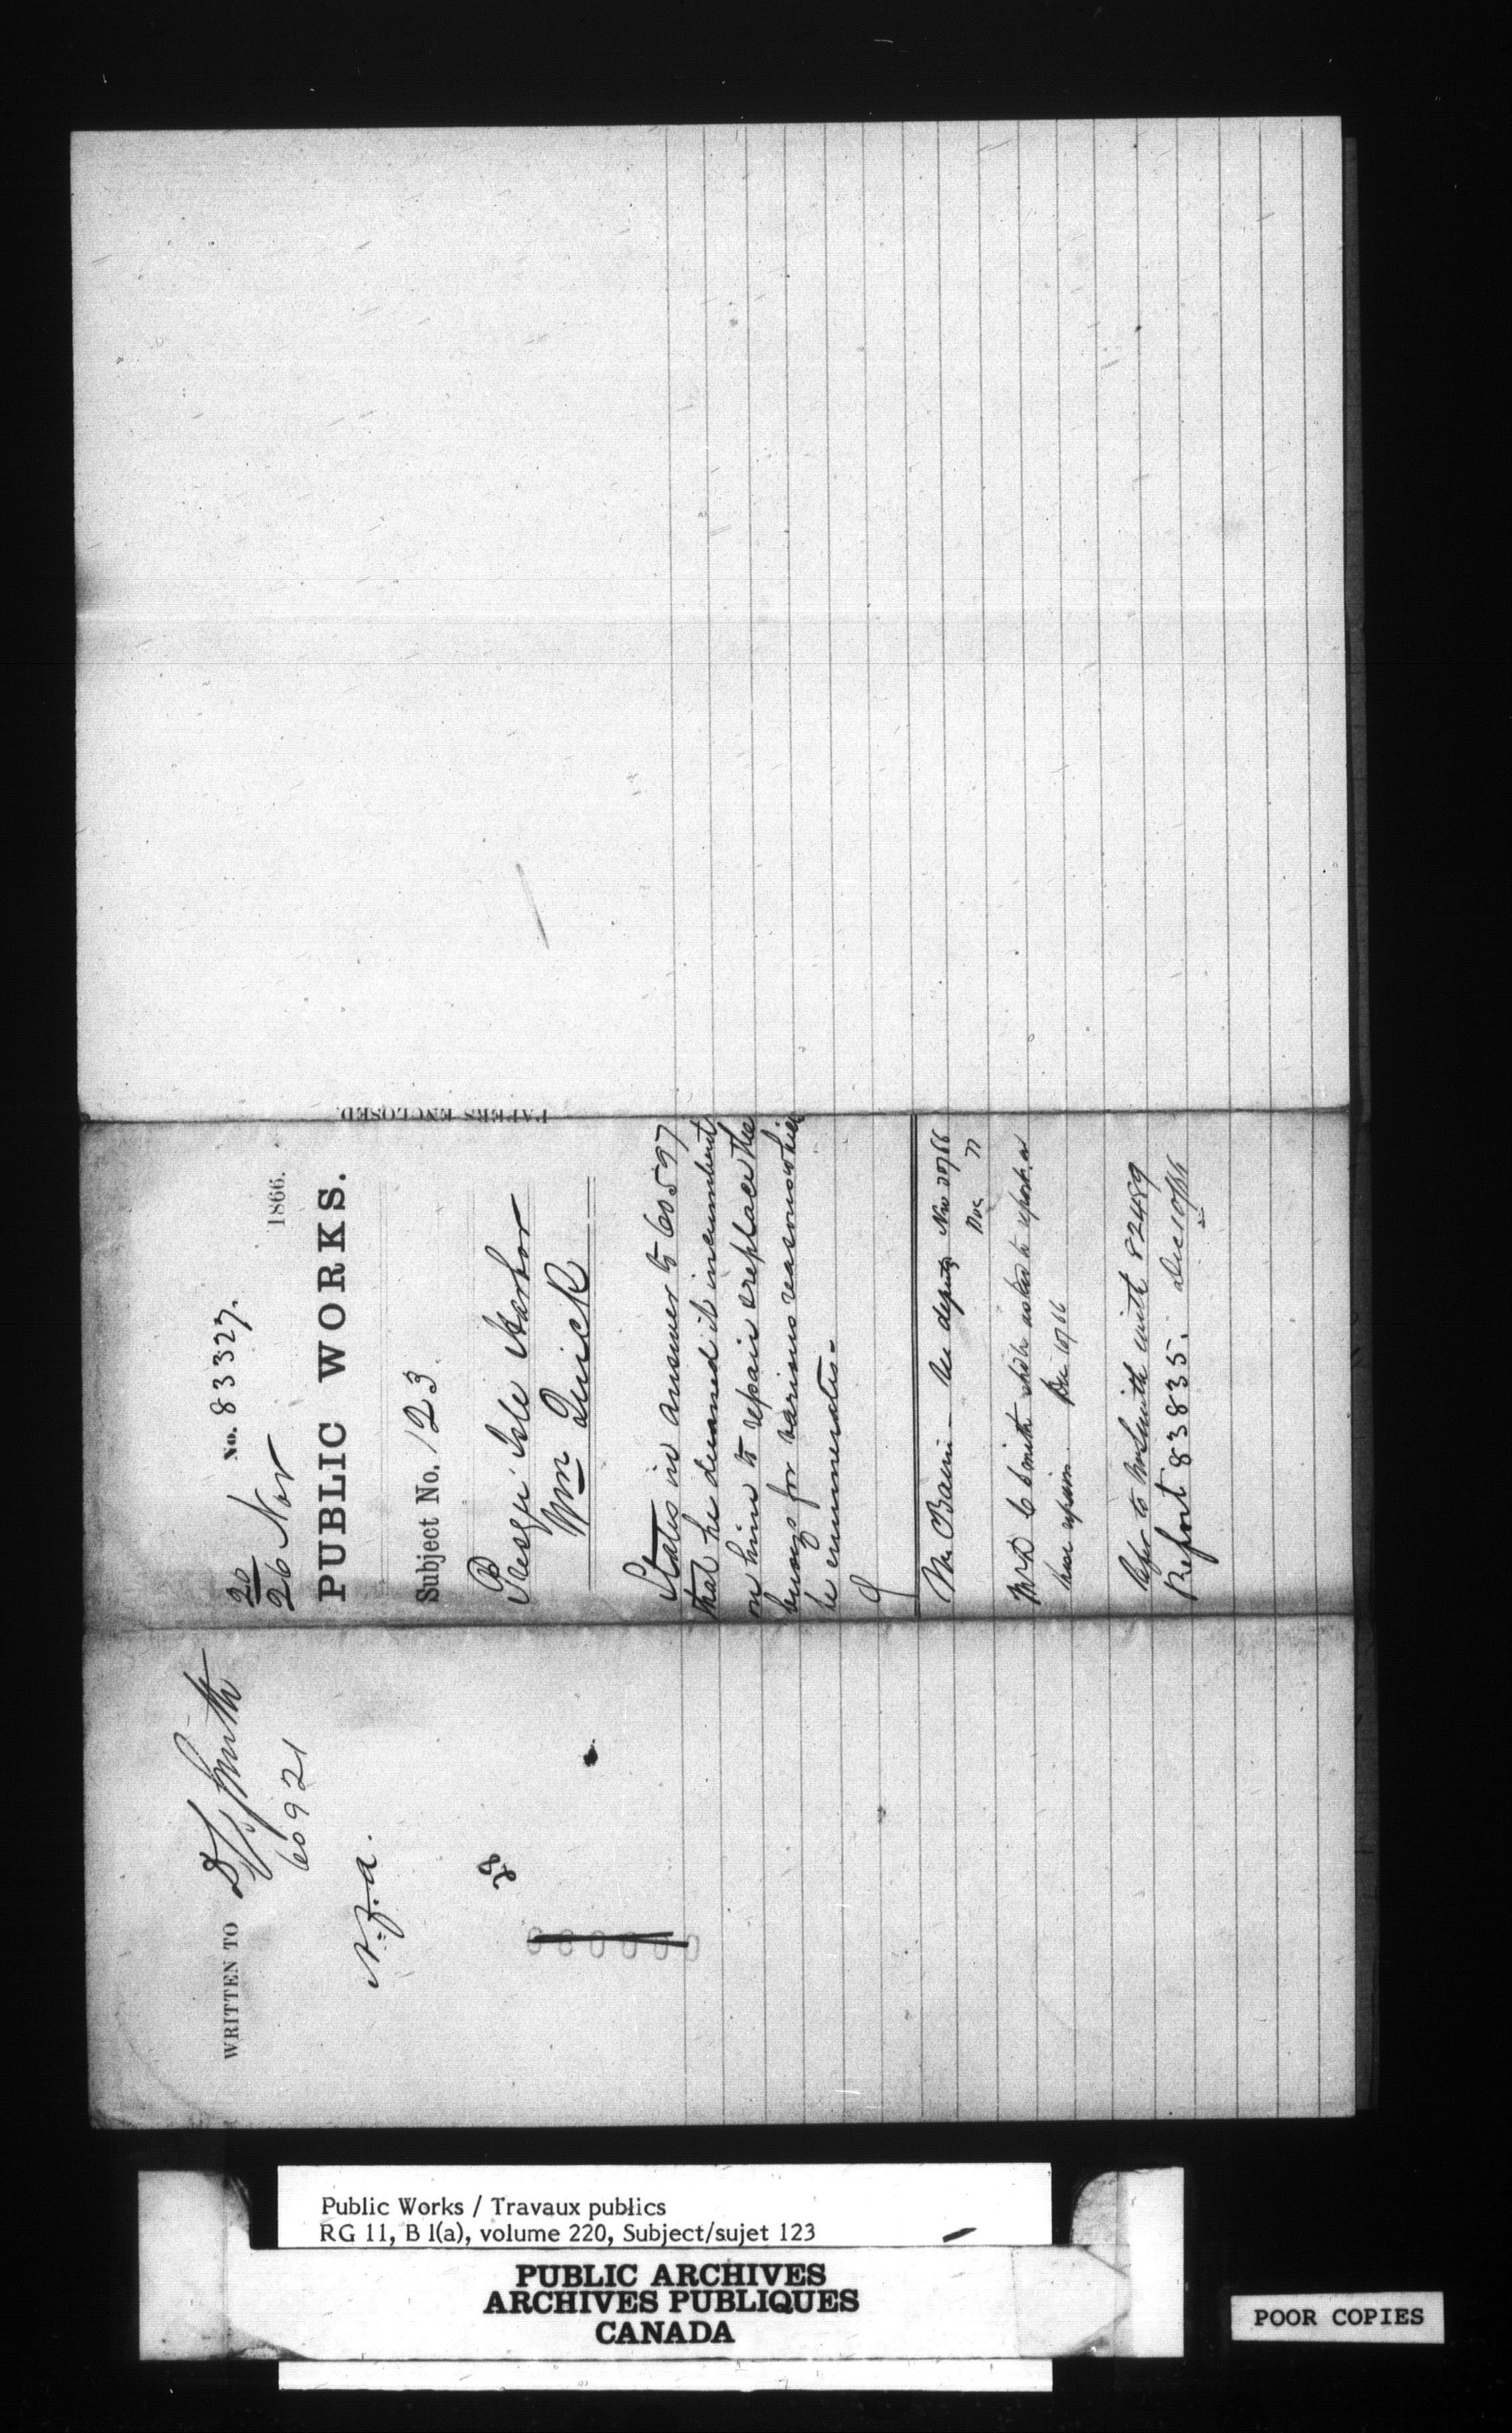 WRITTEN TO D. C. Smith
60921
N.F.A.
20
26 Nov
No. 83327.
1866.
PUBLIC WORKS.
Subject No. 123
Presqu' Isle Harbor
Wm Quick
States in answer to 60597
that he deemed it incumbent
on him to repair & replace the
buoys for various reasons which
he enumerates.
Mr Baine
Nov 27/66
Dec
Mr D C Smith asked to
these repairs Dec 10/66
Refer to Mr Smith with 82489
Report 83835. Dec 10/66
PAPERS ENCLOSED
Public Works / Travaux publics
RG 11, B 1(a), volume 220, Subject/sujet 123
PUBLIC ARCHIVES
ARCHIVES PUBLIQUES
CANADA
POOR COPIES